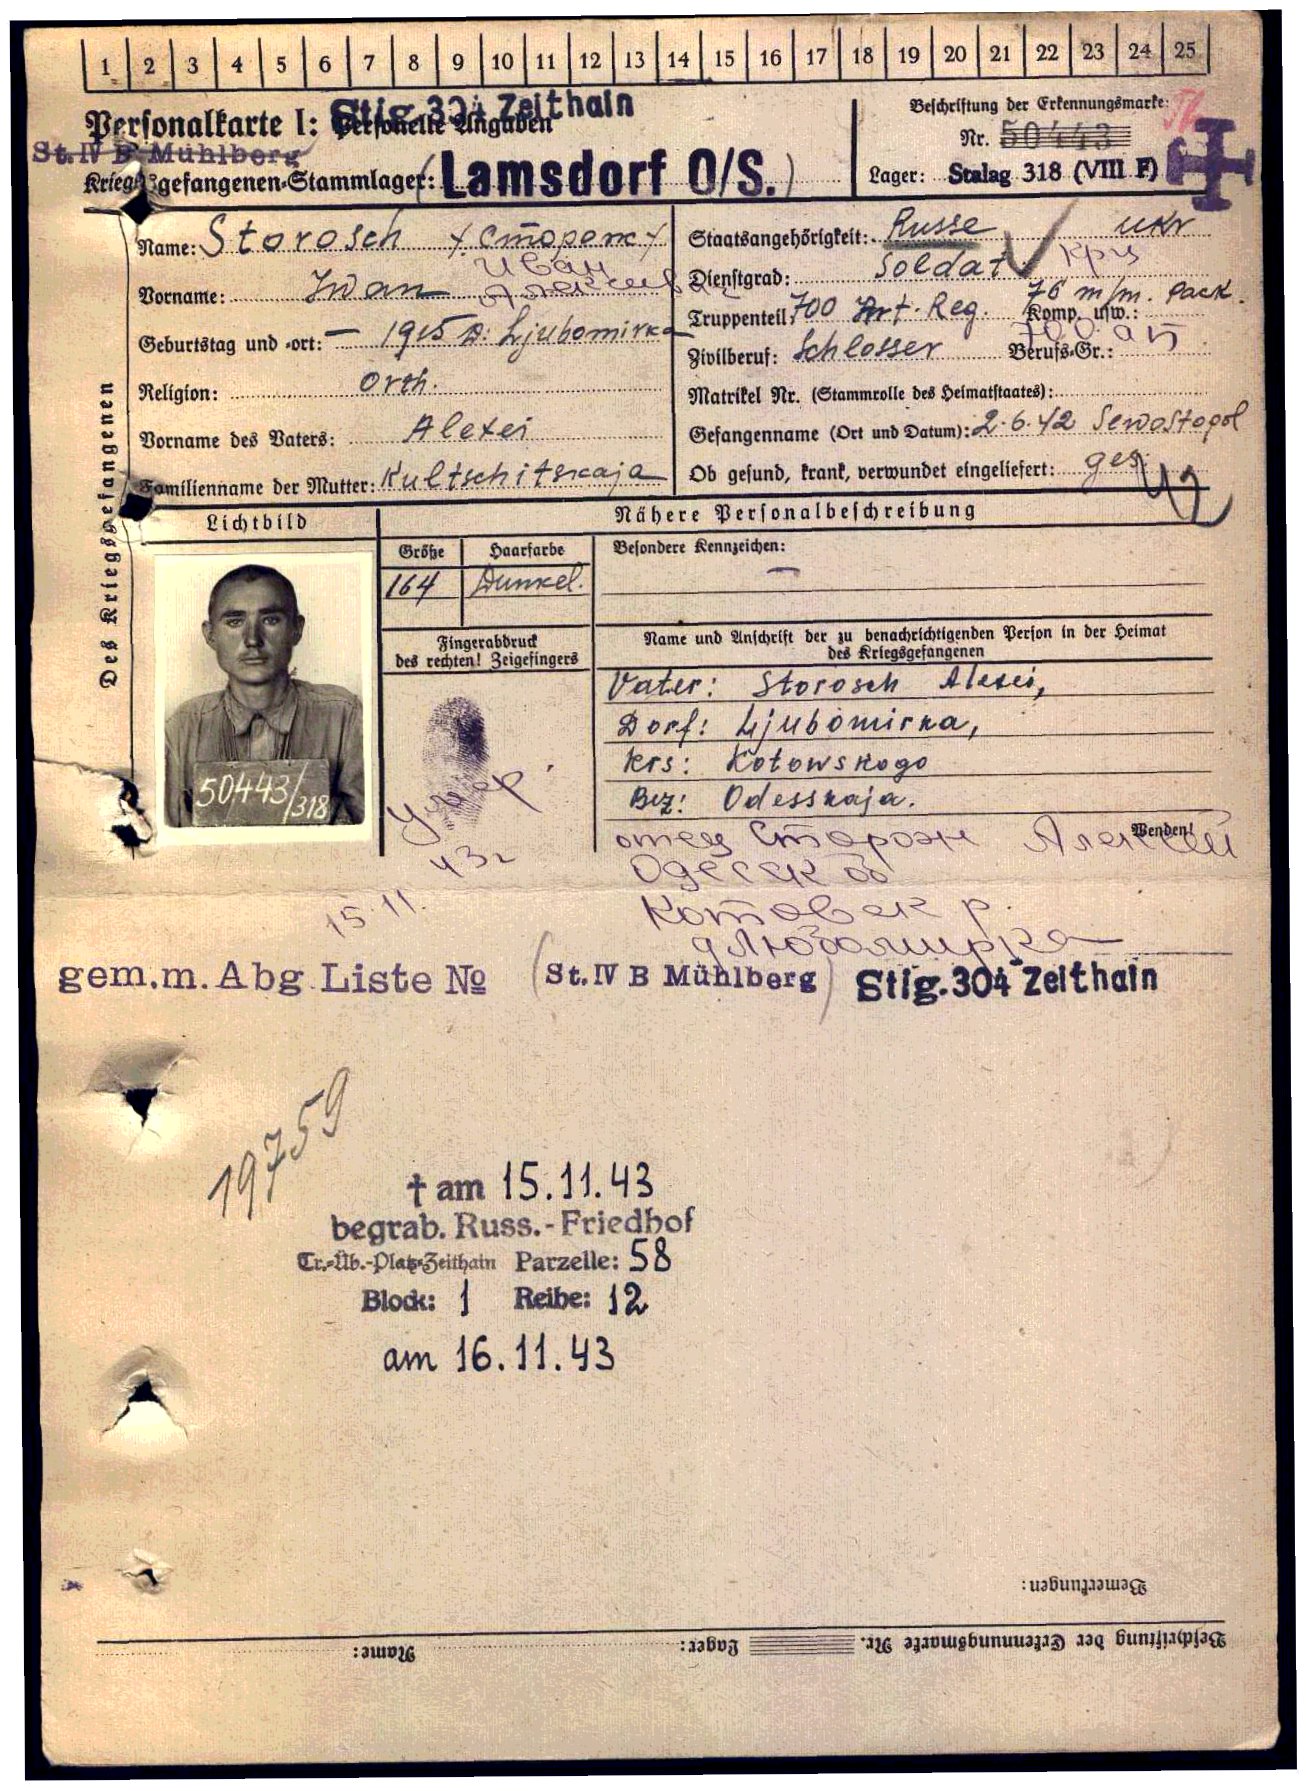 1 2 3 4 5 6 7 8 9 10 11 12 13 14 15 16 17 18 19 20 21 22 23 24 25
Personalkarte I: Personelle Angaben
Stlg. 304 Zeithain
St. IV B Mühlberg
Kriegsgefangenen-Stammlager: (Lamsdorf O/S.)
Beschriftung der Erkennungsmarke:
Nr. 50443
Lager: Stalag 318 (VIII F)
Des Kriegsgefangenen
Name: Storosch + Сторож +
Vorname: Iwan Иван
Алексеевич
Geburtstag und -ort: — 1915 D. Ljubomirka
Religion: Orth.
Vorname des Vaters: Alexei
Familienname der Mutter: Kultschitskaja
Staatsangehörigkeit: Russe ukr
Dienstgrad: Soldat
Truppenteil: 700 Art. Reg. Komp. usw.: 76 m/m. Pack.
700 ап
Zivilberuf: Schlosser Berufs-Gr.:
Matrikel Nr. (Stammrolle des Heimatstaates):
Gefangenname (Ort und Datum): 2.6.42 Sewostopol
Ob gesund, krank, verwundet eingeliefert: ges.
Lichtbild
50443/318
Nähere Personalbeschreibung
Größe Haarfarbe
164 Dunkel.
Besondere Kennzeichen:
—
Fingerabdruck
des rechten! Zeigefingers
Умер.
15.11. 43г
Name und Anschrift der zu benachrichtigenden Person in der Heimat
des Kriegsgefangenen
Vater: Storosch Alexei,
Dorf: Ljubomirka,
Krs: Kotowskogo
Bez: Odesskaja.
Wenden!
отец Сторож Алексей
Одесск об
Котовск р.
д Любомирка
gem. m. Abg. Liste No (St. IV B Mühlberg) Stlg. 304 Zeithain
19759
† am 15.11.43
begrab. Russ.-Friedhof
Tr.-Üb.-Platz-Zeithain Parzelle: 58
Block: 1 Reihe: 12
am 16.11.43
Bemerkungen:
Beschriftung der Erkennungsmarke Nr. Lager: Name: